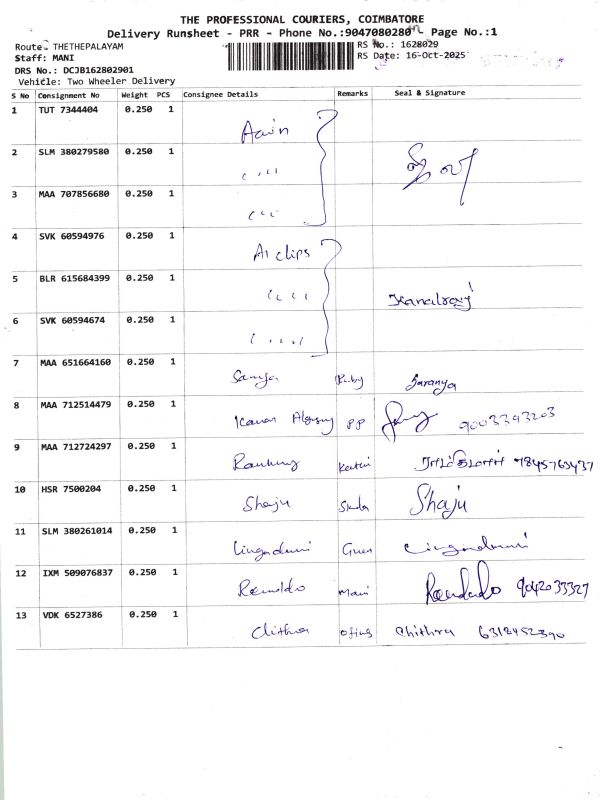 THE PROFESSIONAL COURIERS, COIMBATORE
Delivery Runsheet - PRR - Phone No.:9047080280 - Page No.:1
Route: THETHEPALAYAM RS No.: 1628029
Staff: MANI RS Date: 16-Oct-2025
DRS No.: DCJB162802901
Vehicle: Two Wheeler Delivery
S No Consignment No Weight PCS Consignee Details Remarks Seal & Signature
1 TUT 7344404 0.250 1
2 SLM 380279580 0.250 1
3 MAA 707856680 0.250 1
4 SVK 60594976 0.250 1 Ai clips
5 BLR 615684399 0.250 1
6 SVK 60594674 0.250 1
7 MAA 651664160 0.250 1 Saranya
8 MAA 712514479 0.250 1 PP 9003393203
9 MAA 712724297 0.250 1 ராம்குமார்
10 HSR 7500204 0.250 1 Shaju Shaju
11 SLM 380261014 0.250 1
12 IXM 509076837 0.250 1 Mani 9042033327
13 VDK 6527386 0.250 1 Chithra Chithra 6312452390